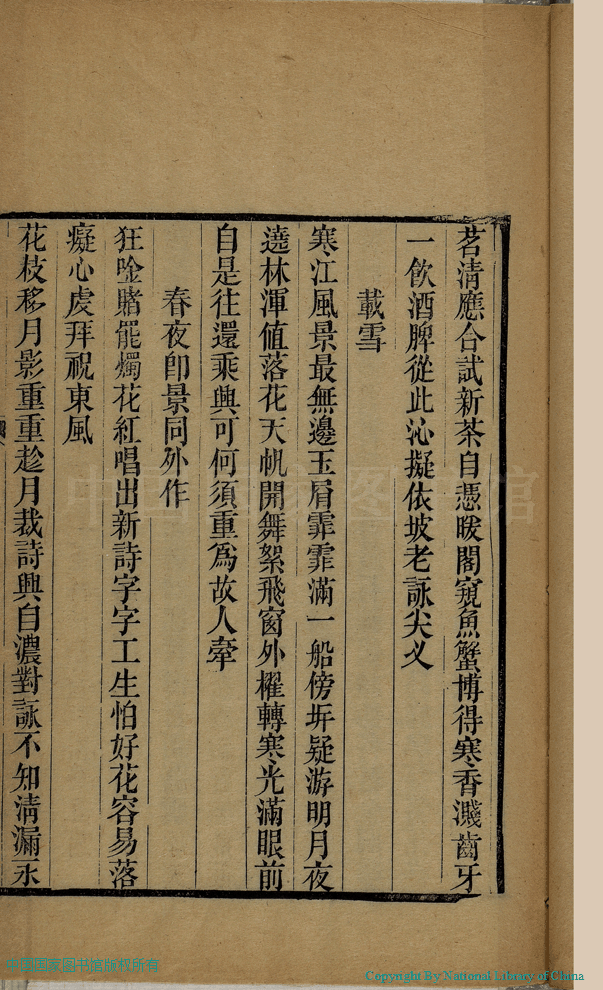 茗清應合試新茶自憑暖閣窺魚蟹博得寒香濺齒牙
一飲酒脾從此沁擬依坡老詠尖义
載雪
寒江風景最無邊玉屑霏霏滿一船傍圻疑游明月夜
遶林渾值落花天帆開舞絮飛窗外櫂轉寒光滿眼前
自是往還乘興可何須重爲故人牽
春夜卽景同外作
狂唫賭罷燭花紅唱出新詩字字工生怕好花容易落
癡心虔拜祝東風
花枝移月影重重趁月裁詩興自濃對詠不知清漏永
中国国家图书馆
中国国家图书馆版权所有
Copyright By National Library of China